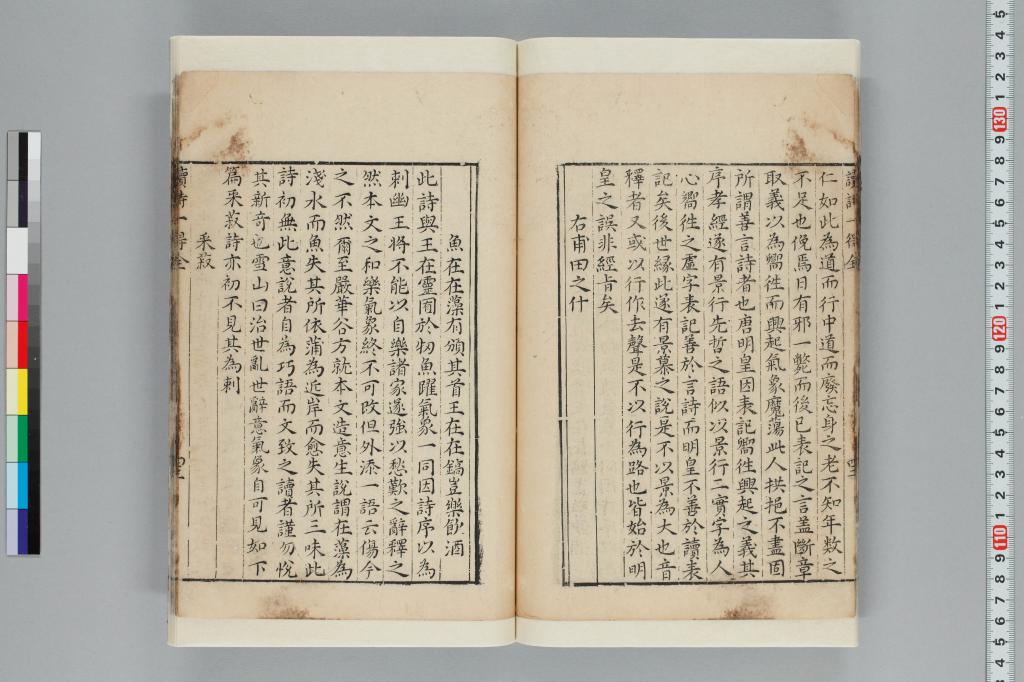 仁如此為道而行中道而廢忘身之老不知年數之
不足也俛焉日有邪一斃而後已表記之言盖斷章
取義以為嚮徃而興起氣象魔蕩此人拱挹不盡固
所謂善言詩者也唐明皇因表記嚮徃興起之義其
序孝經遂有景行先哲之語似以景行二實字為人
心嚮徃之虛字表記善於言詩而明皇不善於讀表
記矣後世縁此遂有景慕之說是不以景為大也音
釋者又或以行作去聲是不以行為路也皆始於明
皇之誤非經㫖矣
右甫田之什
魚在在藻有頒其首王在在鎬豈樂飲酒
此詩與王在靈囿於牣魚躍氣象一同因詩序以為
刺幽王將不能以自樂諸家遂強以愁歎之辭釋之
然本文之和樂氣象終不可改但外添一語云傷今
之不然爾至嚴華谷方就本文造意生說謂在藻為
淺水而魚失其所依蒲為近岸而愈失其所三味此
詩初無此意說者自為巧語而文致之讀者謹勿悅
其新奇也雪山曰治世亂世辭意氣象自可見如下
篇采菽詩亦初不見其為刺
采菽
讀詩一得全